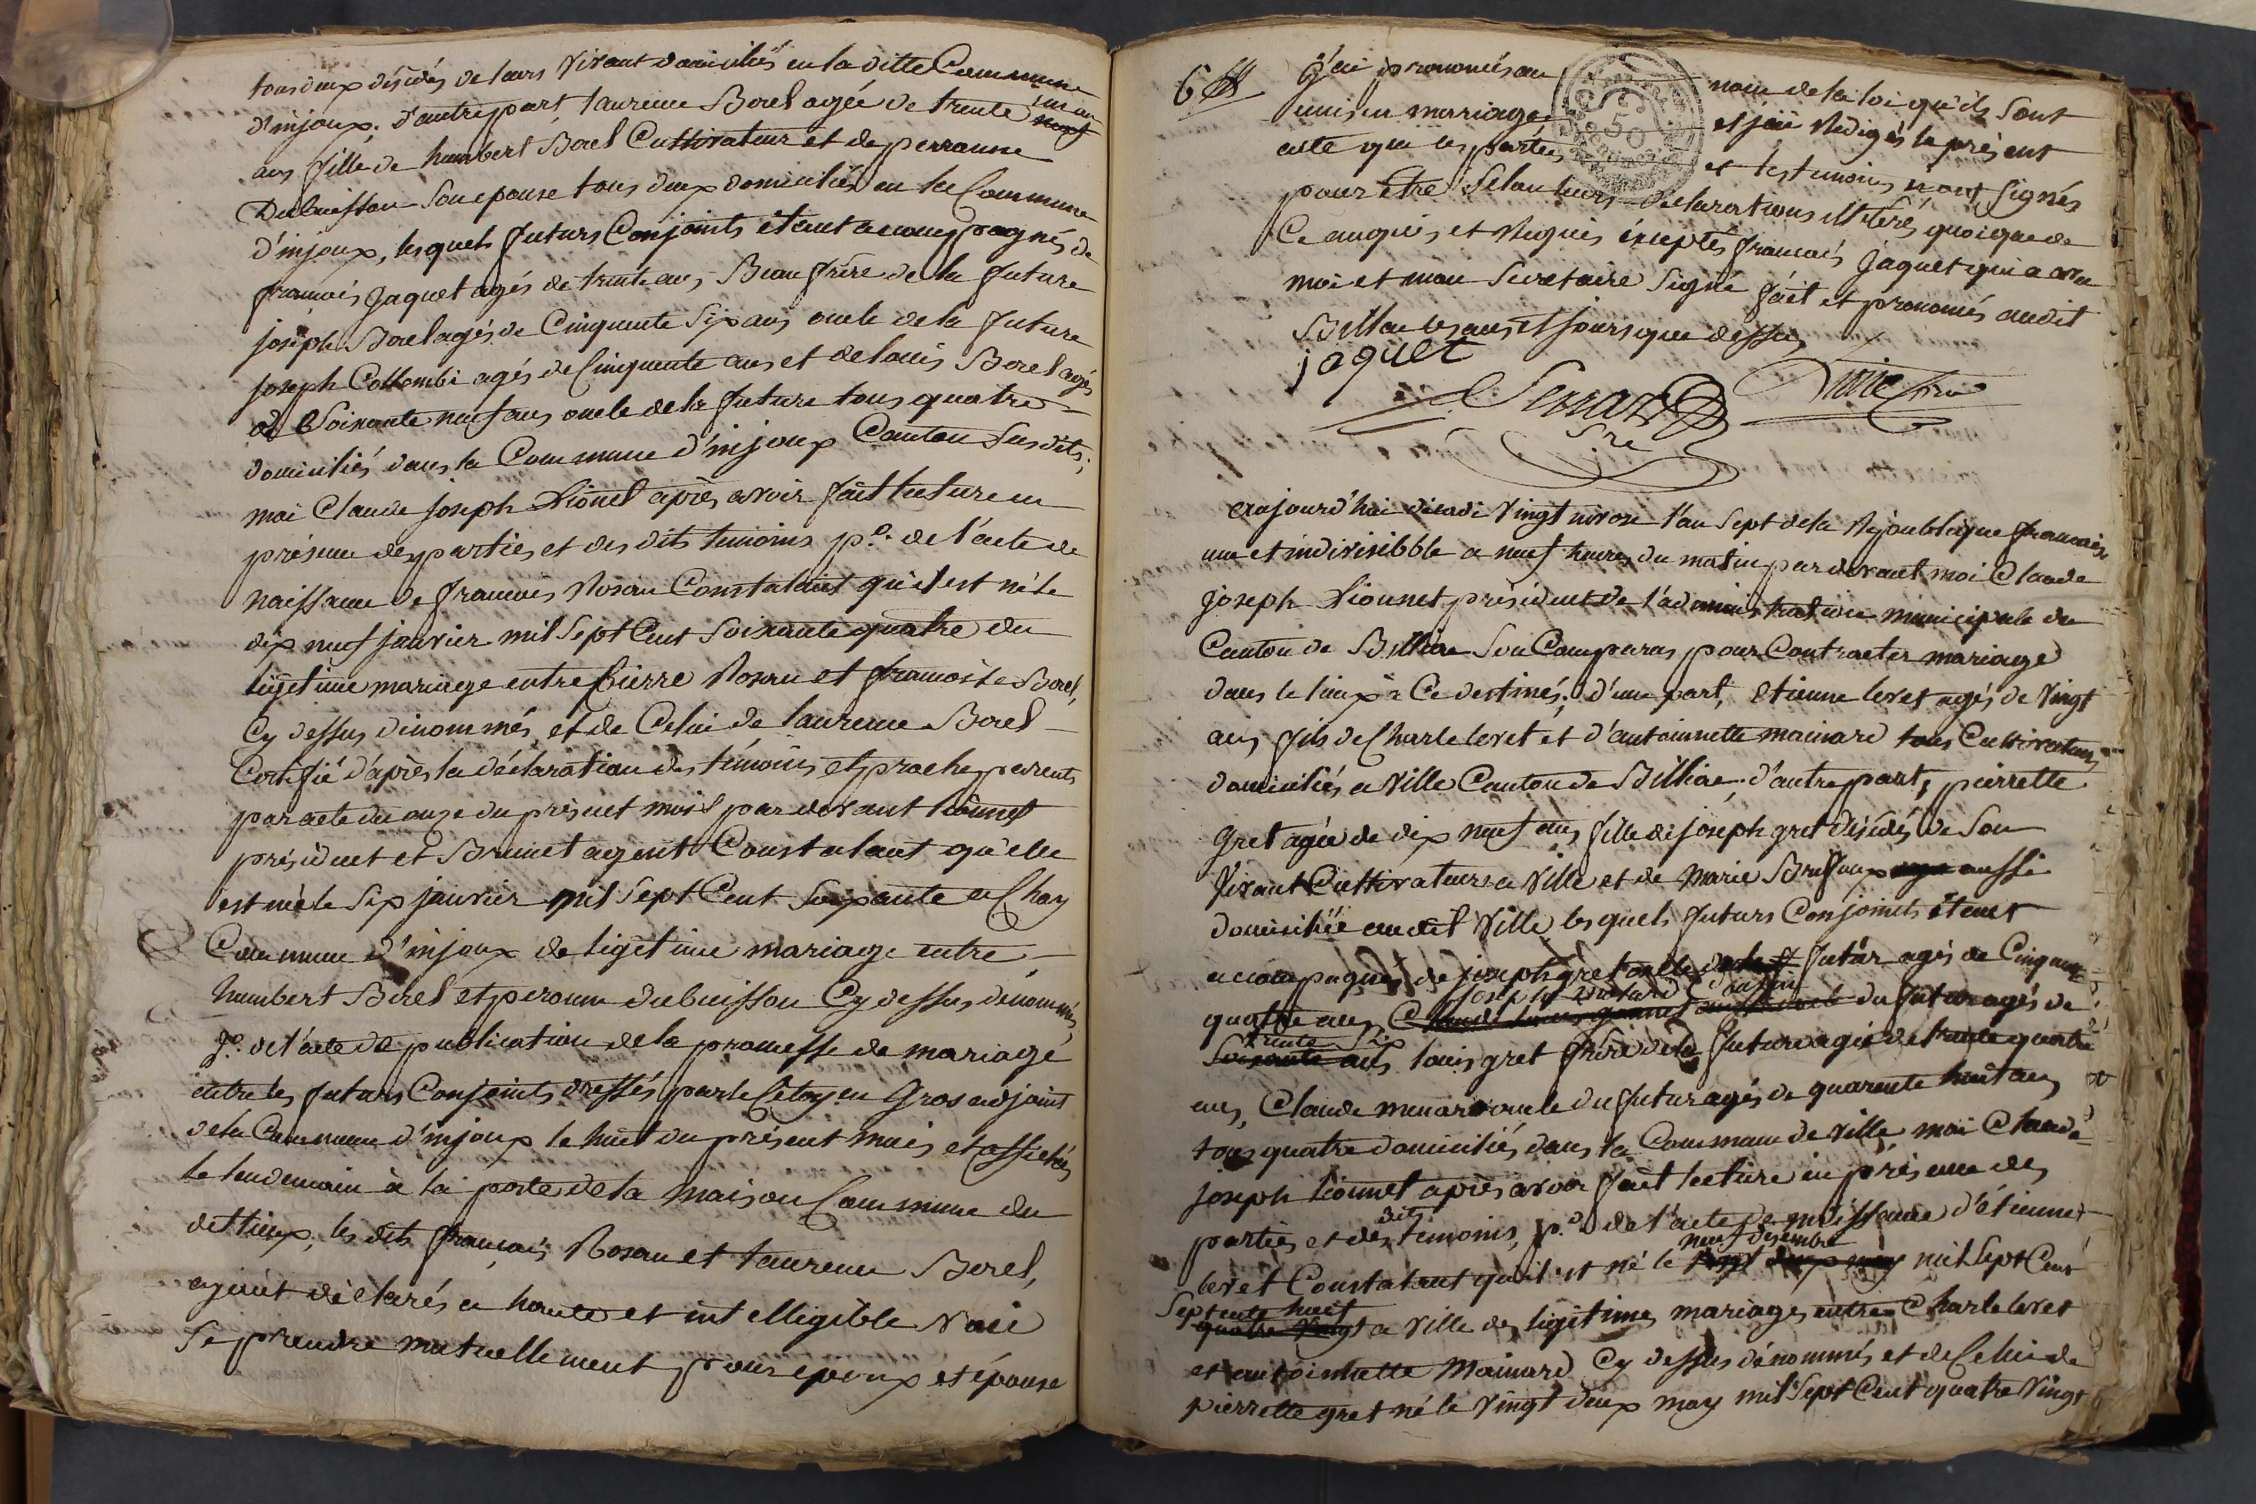 tous deux désédés de leurs vivant domiciliés en la ditte Commune
d'injoux. d'autre part, Laurence Borel agée de trente neuf
ans fille de humbert Borel Cultivateur et de perronne
Dubuisson Son epouse tous deux domiciliés en la Commune
d'injoux, lesquels futurs Conjoints étant accompagnés de
francois Jaquet agés de trente ans, Beau frère de la future
joseph Borel agés de Cinquante Six ans oncle de la future
joseph Collombi agés de Cinquante ans et de louis Borel agés
de Soixante neuf ans oncle de la future tous quatre
domiciliés dans la Commune d'injoux Canton Susdits;
moi Claude joseph Lionet après avoir fait lecture en
présence des parties et des dits témoins po. de l'acte de
naissance de francois Rosan Constatant qu'il est né le
dix neuf janvier mil Sept Cent Soixante quatre du
légetime mariage entre pierre Rosan et francoise Borel,
Cy dessus dénommés et de Celui de laurence Borel
Certifié d'après la déclaration des témoins et proches parents
par acte du onze du présent mois par devant lionnet
président et Brunet agent Constatant qu'elle
est née le Six janvier mil Sept Cent Soixante a Chay
Commune d'injoux de ligetime mariage entre
humbert Borel et peronne dubuisson Cy dessus dénommés
2o. de l'acte de publication de la promesse de mariage
entre les futurs Conjoints dressés par le Citoyen Gros adjoint
de la Commune d'injoux le huit du présent mois et affichés
le lendemain à la porte de la maison Commune du
dit lieux, les dits francois Rosan et laurence Borel,
ayant déclarés a haute et intelligible voix
Se prendre mutuellement pour epoux et épouse
6
J'ai prononcés au nom de la loi qu'ils Sont
unis en mariage et j'ai rédigés le présent
acte que les parties et les temoins n'ont Signés
50
pour être Selon leurs déclarations illitérés, quoique de
Ce anquis et requis éxceptés francois Jaquet qui a avec
moi et mon Secretaire Signé fait et prononcés audit
Billiat les ans et jours que dessus
jaquet
Sre
aujourd'hui décadi vingt nivose l'an Sept de la République francaise
une et indivisibble a neuf heures du matin par devant moi Claude
joseph Lionnet président de l'administration municipale du
Canton de Billiat Son Comparus pour Contracter mariage
dans le lieux a Ce destinés; d'une part, etienne levet agés de vingt
ans fils de Charle levet et d'antoinnette mainard tous Cultivateurs
domiciliés a ville Canton de Billiat; d'autre part, pierrette
gret agée de dix neuf ans fille de joseph gret désédés de Son
vivant Cultivateur a ville et de Marie Brussoux aussi
domiciliée au dit ville lesquels futurs Conjoints étant
accompagnés de joseph gret oncle du futur agés de Cinquante
quatre ans, Claude du futur agés de
joseph
trente Six
Soixante ans louis gret frère de la future agés de trente quatre
ans, Claude menard oncle du futur agés de quarente huit ans
tous quatre domiciliés dans la Commune de ville moi Claude
joseph lionnet après avoir fait lecture en présence des
parties et des dits temoins, po. de l'acte de naissance d'étienne
neuf desembre
levet Constatant qu'il est né le vingt deux may mil Sept Cent
Septente huit
quatre vingt a ville de ligetime mariage entre Charle levet
et antoinnette Mainard Cy dessus dénommés et de Celui de
pierrette gret né le vingt deux may mil Sept Cent quatre vingt